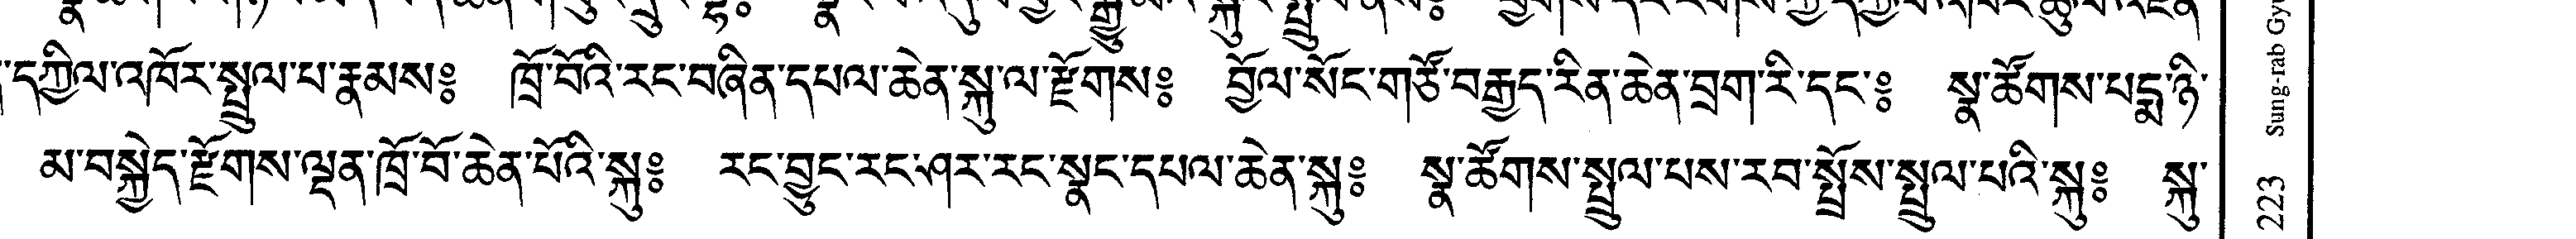 དཀྱིལ་འཁོར་སྤྲུལ་པ་རྣམས༔ ཁྲོ་བོའི་རང་བཞིན་དཔལ་ཆེན་སྐུ་ལ་རྫོགས༔ བྱོལ་སོང་གཙོ་བརྒྱད་རིན་ཆེན་བྲག་རི་དང་༔ སྣ་ཚོགས་པདྨ་ཉི་
མ་བསྐྱེད་རྫོགས་ལྡན་ཁྲོ་བོ་ཆེན་པོའི་སྐུ༔ རང་བྱུང་རང་ཤར་རང་སྣང་དཔལ་ཆེན་སྐུ༔ སྣ་ཚོགས་སྤྲུལ་པས་རབ་སྤྲོས་སྤྲུལ་པའི་སྐུ༔ སྐུ་
Sung-rab
223